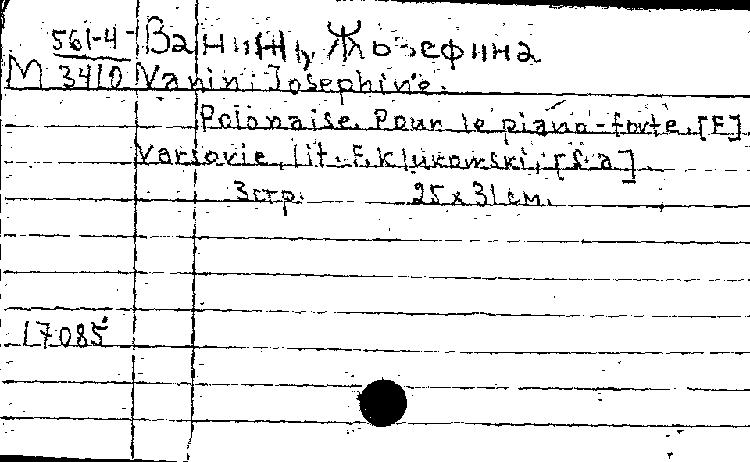 561-4 Ванини, Жозефина
М 3410 Vanini Josephine.
Polonaise. Pour le piano-forte. [F]
Varsovie, lit. F. Klukowski, [s.a]
3 стр. 25 x 31 см.
17085